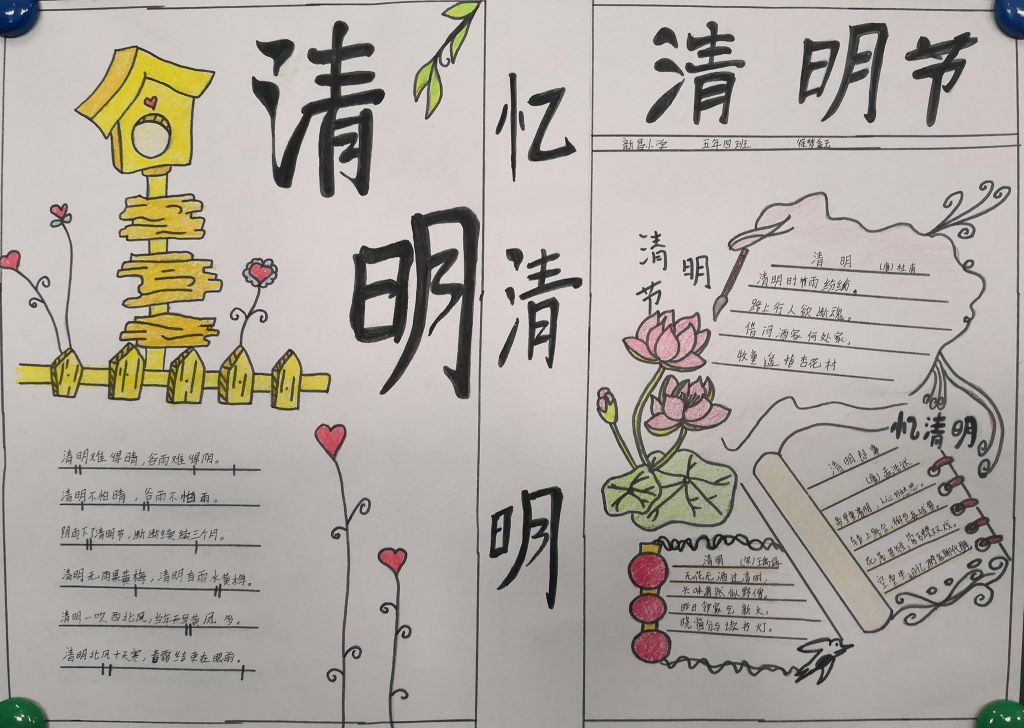 清
明
清明难得晴，谷雨难得阴。
清明不怕晴，谷雨不怕雨。
阴雨下了清明节，断断续续三个月。
清明无雨黄梅，清明有雨水黄梅。
清明一吹西北风，当年天旱黄风
清明北风十天寒，春霜结束在眼前。
忆
清
明
清明节
新昌小学 五年四班
清明节
清明 (唐)杜甫
清明时节雨纷纷。
路上行人欲断魂。
借问酒家何处家，
牧童遥指杏花村
忆清明
清明 事
(唐)孟浩然
清明，人心
路合，柳色东城翠。
花落草齐生，莺飞蝶双戏。
空堂坐相忆，
清明 (宋)
无花无酒过清明，
兴味萧然似野僧。
昨日邻家乞新火，
晓窗分与读书灯。